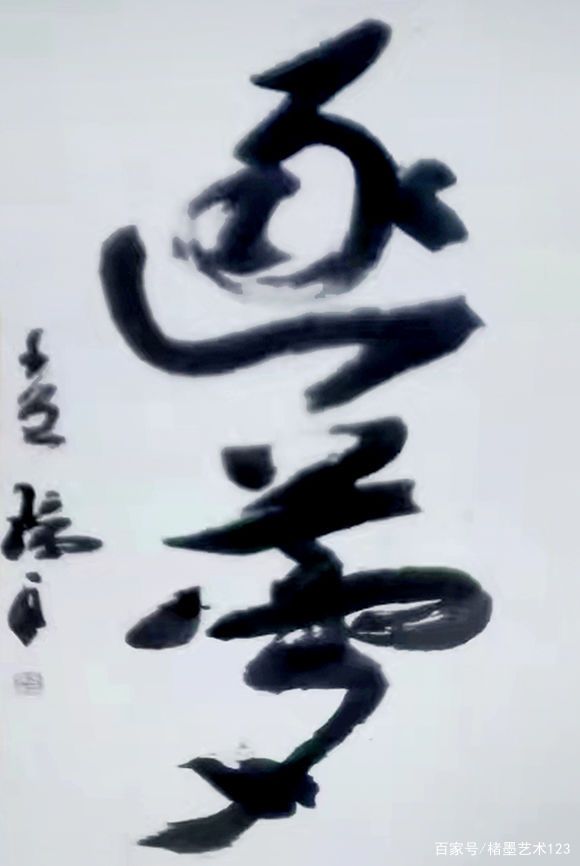 逐夢
百家号/楮墨艺术123